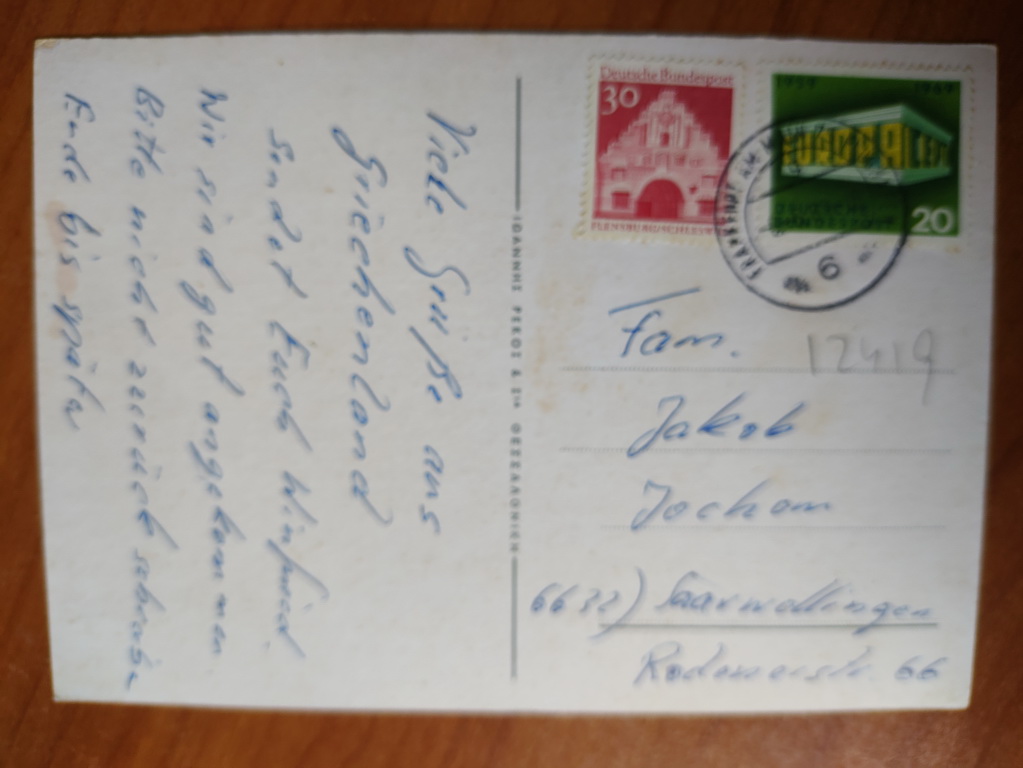 Viele Grüße aus
Griechenland
sendet Euch Winfried.
Wir sind gut angekommen.
Bitte nicht zurück schreiben
Ende bis später
ΙΩΑΝΝΗΣ ΡΕΚΟΣ & Σια ΘΕΣΣΑΛΟΝΙΚΗ
Deutsche Bundespost
30
FLENSBURG/SCHLESWIG
1959 1969
EUROPA CEPT
DEUTSCHE
BUNDESPOST
20
FRANKFURT AM MAIN
6
12419
Fam.
Jakob
Jochem
6632) Saarwellingen
66